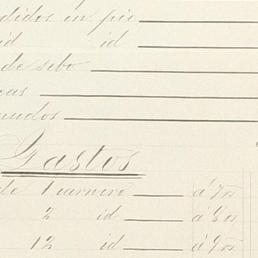 didos in pie
id id
de sebo
cas
nudos
Gastos
de 1 carnero
2 id
12 id